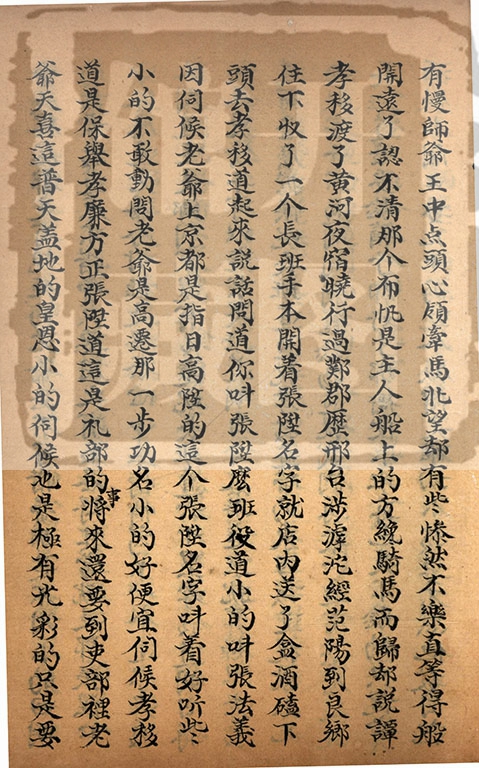 有慢師爺王中点頭心頎牵馬北望却有些慘然不樂直等得般
開遠了認不清那个布帆是主人船上的方纔騎馬而歸却說譚
孝移渡了黄河夜宿曉行過鄴郡歷邢台涉滹沱經范陽到良鄉
住下収了一个長班手本開着張陞名字就店内送了盒酒磕下
頭去孝移道起來說話問道你呌張陞麽班役道小的呌張法義
因伺候老爺上京都是指日高陞的這个張陞名字呌着好听些
小的不敢動問老爺是高遷那一步功名小的好便宜伺候孝移
道是保舉孝廉方正張陞道這是礼部的事將來還要到吏部裡老
爺天喜這普天盖地的皇恩小的伺候也是極有光彩的只是要